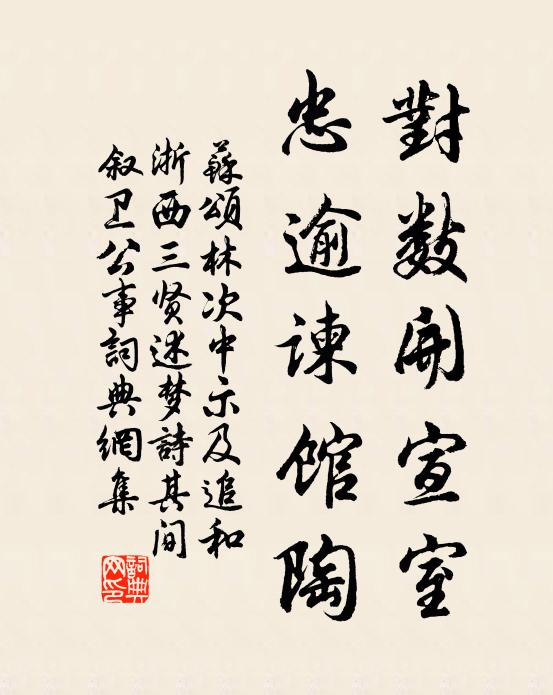 對數開宣室
忠逾諫馆陶
蘇頌林次中示及追和
浙西三贤述梦詩其间
叙卫公事詞典網集
詞典网印